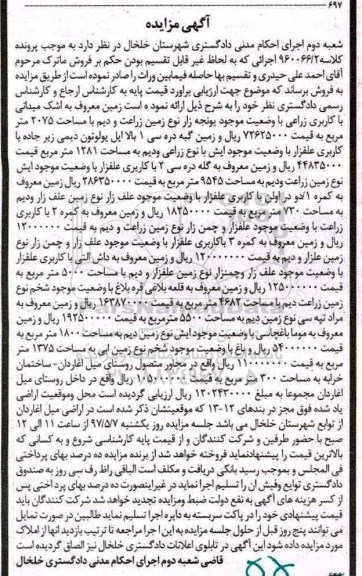 ۶۹۷
آگهی مزایده
شعبه دوم اجرای احکام مدنی دادگستری شهرستان خلخال در نظر دارد به موجب پرونده
کلاسه ۹۶۰۰۶۶/۲ اجرائی که به لحاظ غیر قابل تقسیم بودن حکم بر فروش ماترک مرحوم
آقای احمد علی حیدری و تقسیم بها حاصله فیمابین وراث را صادر نموده است از طریق مزایده
به فروش برساند که موضوع جهت ارزیابی برآورد قیمت پایه به کارشناس ارجاع و کارشناس
رسمی دادگستری نظر خود را به شرح ذیل ارائه نموده است زمین معروف به اشک میدانی
با کاربری زراعی با وضعیت موجود یونجه زار نوع زمین زراعت و دیم با مساحت ۲۰۷۵ متر
مربع به قیمت ۷۲۶۲۵۰۰۰ ریال و زمین گبه دره سی ۱ بالا ایل یولوتون دیمی زیر جاده با
کاربری علفزار با وضعیت موجود ایش با نوع زراعی ودیم به مساحت ۱۲۸۱ متر مربع قیمت
۴۴۸۳۵۰۰۰ ریال و زمین معروف به گله دره سی ۲ با کاربری علفزار با وضعیت موجود ایش
نوع زمین زراعت ودیم به مساحت ۹۵۴۵ متر مربع به قیمت ۲۸۶۳۵۰۰۰۰ ریال و زمین معروف
به کمره ۱/دو در اولن با کاربری علفزار با وضعیت موجود علف زار نوع زمین علف زار ودیم
به مساحت ۷۳۰ متر مربع به قیمت ۱۸۲۵۰۰۰۰ ریال و زمین معروف به کمره ۲ با کاربری
زراعت با وضعیت موجود علفزار و چمن زار نوع زمین زراعت و دیم به قیمت ۱۲۰۰۰۰۰۰
ریال و زمین معروف به کمره ۳ باکاربری علفزار با وضعیت موجود علف زار و چمن زار نوع
زمین علفزار و دیم به قیمت ۱۲۰۰۰۰۰۰ ریال و زمین معروف به داش آلتی با کاربری علفزار
با وضعیت موجود علف زار وچمنزار نوع زمین علفزار و دیم با مساحت ۵۰۰۰ متر مربع به
قیمت ۱۲۵۰۰۰۰۰۰ ریال و زمین معروف به قلعه بلاغی قره بلاغ با وضعیت موجود شخم نوع
زمین زراعت دیم با مساحت ۴۶۸۲ متر مربع به قیمت ۱۶۳۸۷۰۰۰۰ ریال و زمین معروف به
مراد تپه سی نوع زمین دیم به مساحت ۵۵۰۰ مترمربع به قیمت ۱۹۲۵۰۰۰۰۰ ریال و زمین
معروف به موما باغچاسی با وضعیت موجود ایش نوع زمین دیم به مساحت ۱۸۰۰ متر مربع به
قیمت ۵۴۰۰۰۰۰۰ ریال و باغ با وضعیت موجود شخم نوع زمین آبی به مساحت ۱۳۷۵ متر
مربع به قیمت ریال واقع در مجاور متصل روستای میل اغاردان - ساختمان
خرابه به مساحت ۳۰۰ متر مربع به قیمت ریال واقع در داخل روستای میل
اغاردان مجموعا به مبلغ ۱۲۰۲۴۳۰۰۰۰ ریال ارزیابی گردیده است محل وموقعیت اراضی
یاد شده فوق مجزا در بندهای ۱۲-۱۳ که موقعیتشان ذکر شده است در اراضی میل اغاردان
از توابع شهرستان خلخال می باشد جلسه مزایده روز یکشنبه ۹۷/۵/۷ از ساعت ۱۱ الی ۱۲
صبح با حضور طرفین و شرکت کنندگان و از قیمت پایه کارشناسی شروع و به کسانی که
بالاترین قیمت را پیشنهادنماید فروخته خواهد شد از برنده مزایده ده درصد بهای پرداختی
فی المجلس و بموجب رسید بانکی دریافت و مکلف است الباقی راظرف سی روز به صندوق
دادگستری تودیع وفیش آن را تسلیم اجرا نماید در غیراینصورت ده درصد بهای پرداختی پس
از کسر هزینه های آگهی به نفع دولت ضبط ومزایده تجدید خواهد شد شرکت کنندگان باید
قیمت پیشنهادی خود را در پاکت سربسته به دایره اجرا تسلیم نماید طالبین در صورت تمایل
می توانند پنج روز قبل از حلول جلسه مزایده به این اجرا مراجعه تا ترتیب بازدید آنها از املاک
مورد مزایده داده شود این آگهی در تابلوی اعلانات دادگستری خلخال نیز الصاق گردیده است
قاضی شعبه دوم اجرای احکام مدنی دادگستری خلخال